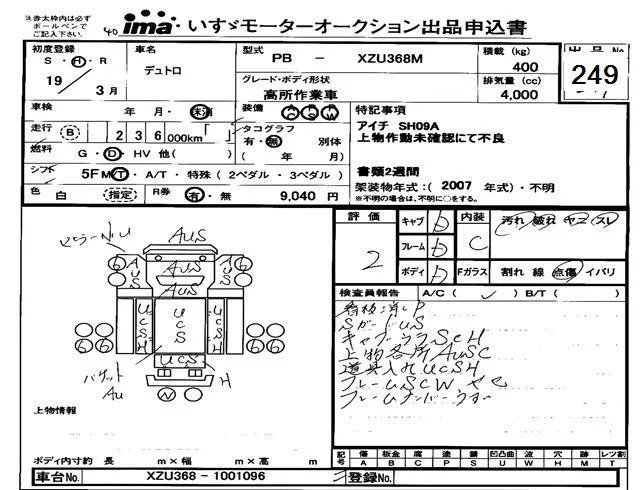 注.赤太枠内は必ず
ボールペンで
ご記入下さい.
40 ima いすゞモーターオークション出品申込書
初度登録 S・H・R 19 3月
車名 デュトロ
型式 PB - XZU368M
積載 (kg) 400
出品No 249
グレード・ボディ形状 高所作業車
排気量 (cc) 4,000
車検 年 月・未消
装備 AC PS PW
走行 (B) 236,000km「 」
タコグラフ 有・無 別体 ( 年 月)
燃料 G・D・HV 他( )
シフト 5F MT・A/T・特殊(2ペダル・3ペダル)
色 白 (指定) R券 有・無 9,040 円
特記事項
アイチ SH09A
上物作動未確認にて不良
書類2週間
架装物年式:( 2007 年式)・不明
※不明の場合は、不明に○をする。
評価 2
キャブ D 内装 C 汚れ 破れ ヤニ スレ
フレーム D
ボディ D Fガラス 割れ 線 点傷 イバリ
検査員報告 A/C( ✓ ) B/T( )
SガードUS
キャブウラSCH
上物各所AUSC
道具入れUCSH
フレームSCW
AUS
AUS
AUS
AUS
AUS
UCSH
UCS
UCSH
UCS
H
バケット
AU
N
上物情報
ボディ内寸約 長 m×幅 m×高 m
記号 傷A 板金B 腐C 塗P 錆S 凹凸曲U 波W 穴H 跡M レツ割T
車台No. XZU368 - 1001096
登録No.